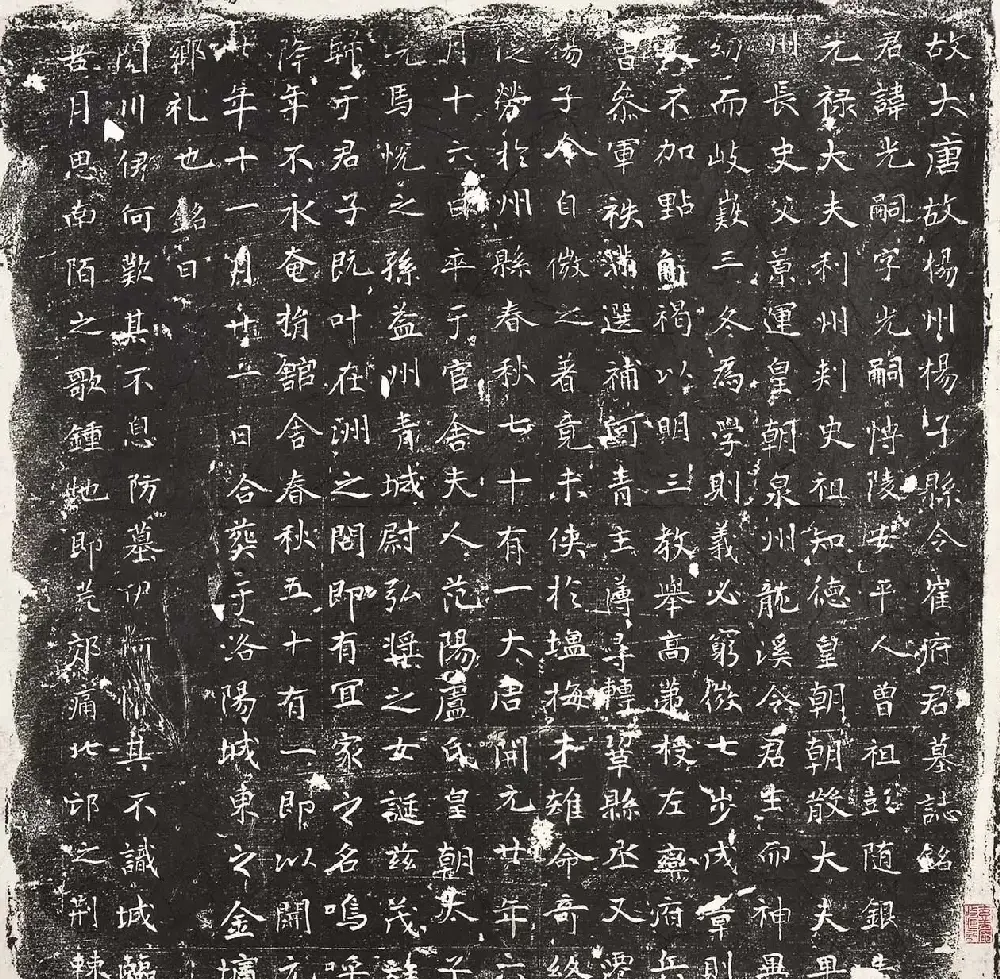 故大唐故楊州楊子縣令崔府君墓誌銘
君諱光嗣字光嗣博陵安平人曾祖彭随銀青
元禄大夫利州刾史祖知德皇朝朝散大夫
州長史父景運皇朝泉州龍溪令君生而神異
幼而岐嶷三冬為學則義必窮微七步成章則
文不加點解褐以明三教舉高第授左衛府兵
曹叅軍秩滿選補青主簿尋轉鞏縣丞又
楊子令自微之著竟未使於塩梅才雄命奇終
從勞於州縣春秋七十有一大唐開元廿年六
月十六日卒于官舍夫人范陽盧氏皇朝太子
洗馬悅之孫益州青城尉弘奬之女誕兹茂
歸于君子旣叶在洲之閤即有冝家之名嗚呼
降年不永奄捐舘舍春秋五十有一即以開元
年十一月廿一日合葬于洛陽城東之金墉
鄉礼也銘曰
閱川伊何歎其不息防墓伊何惜其不識城
昔月思南陌之歌鍾地即荒郊痛北邙之荆棘